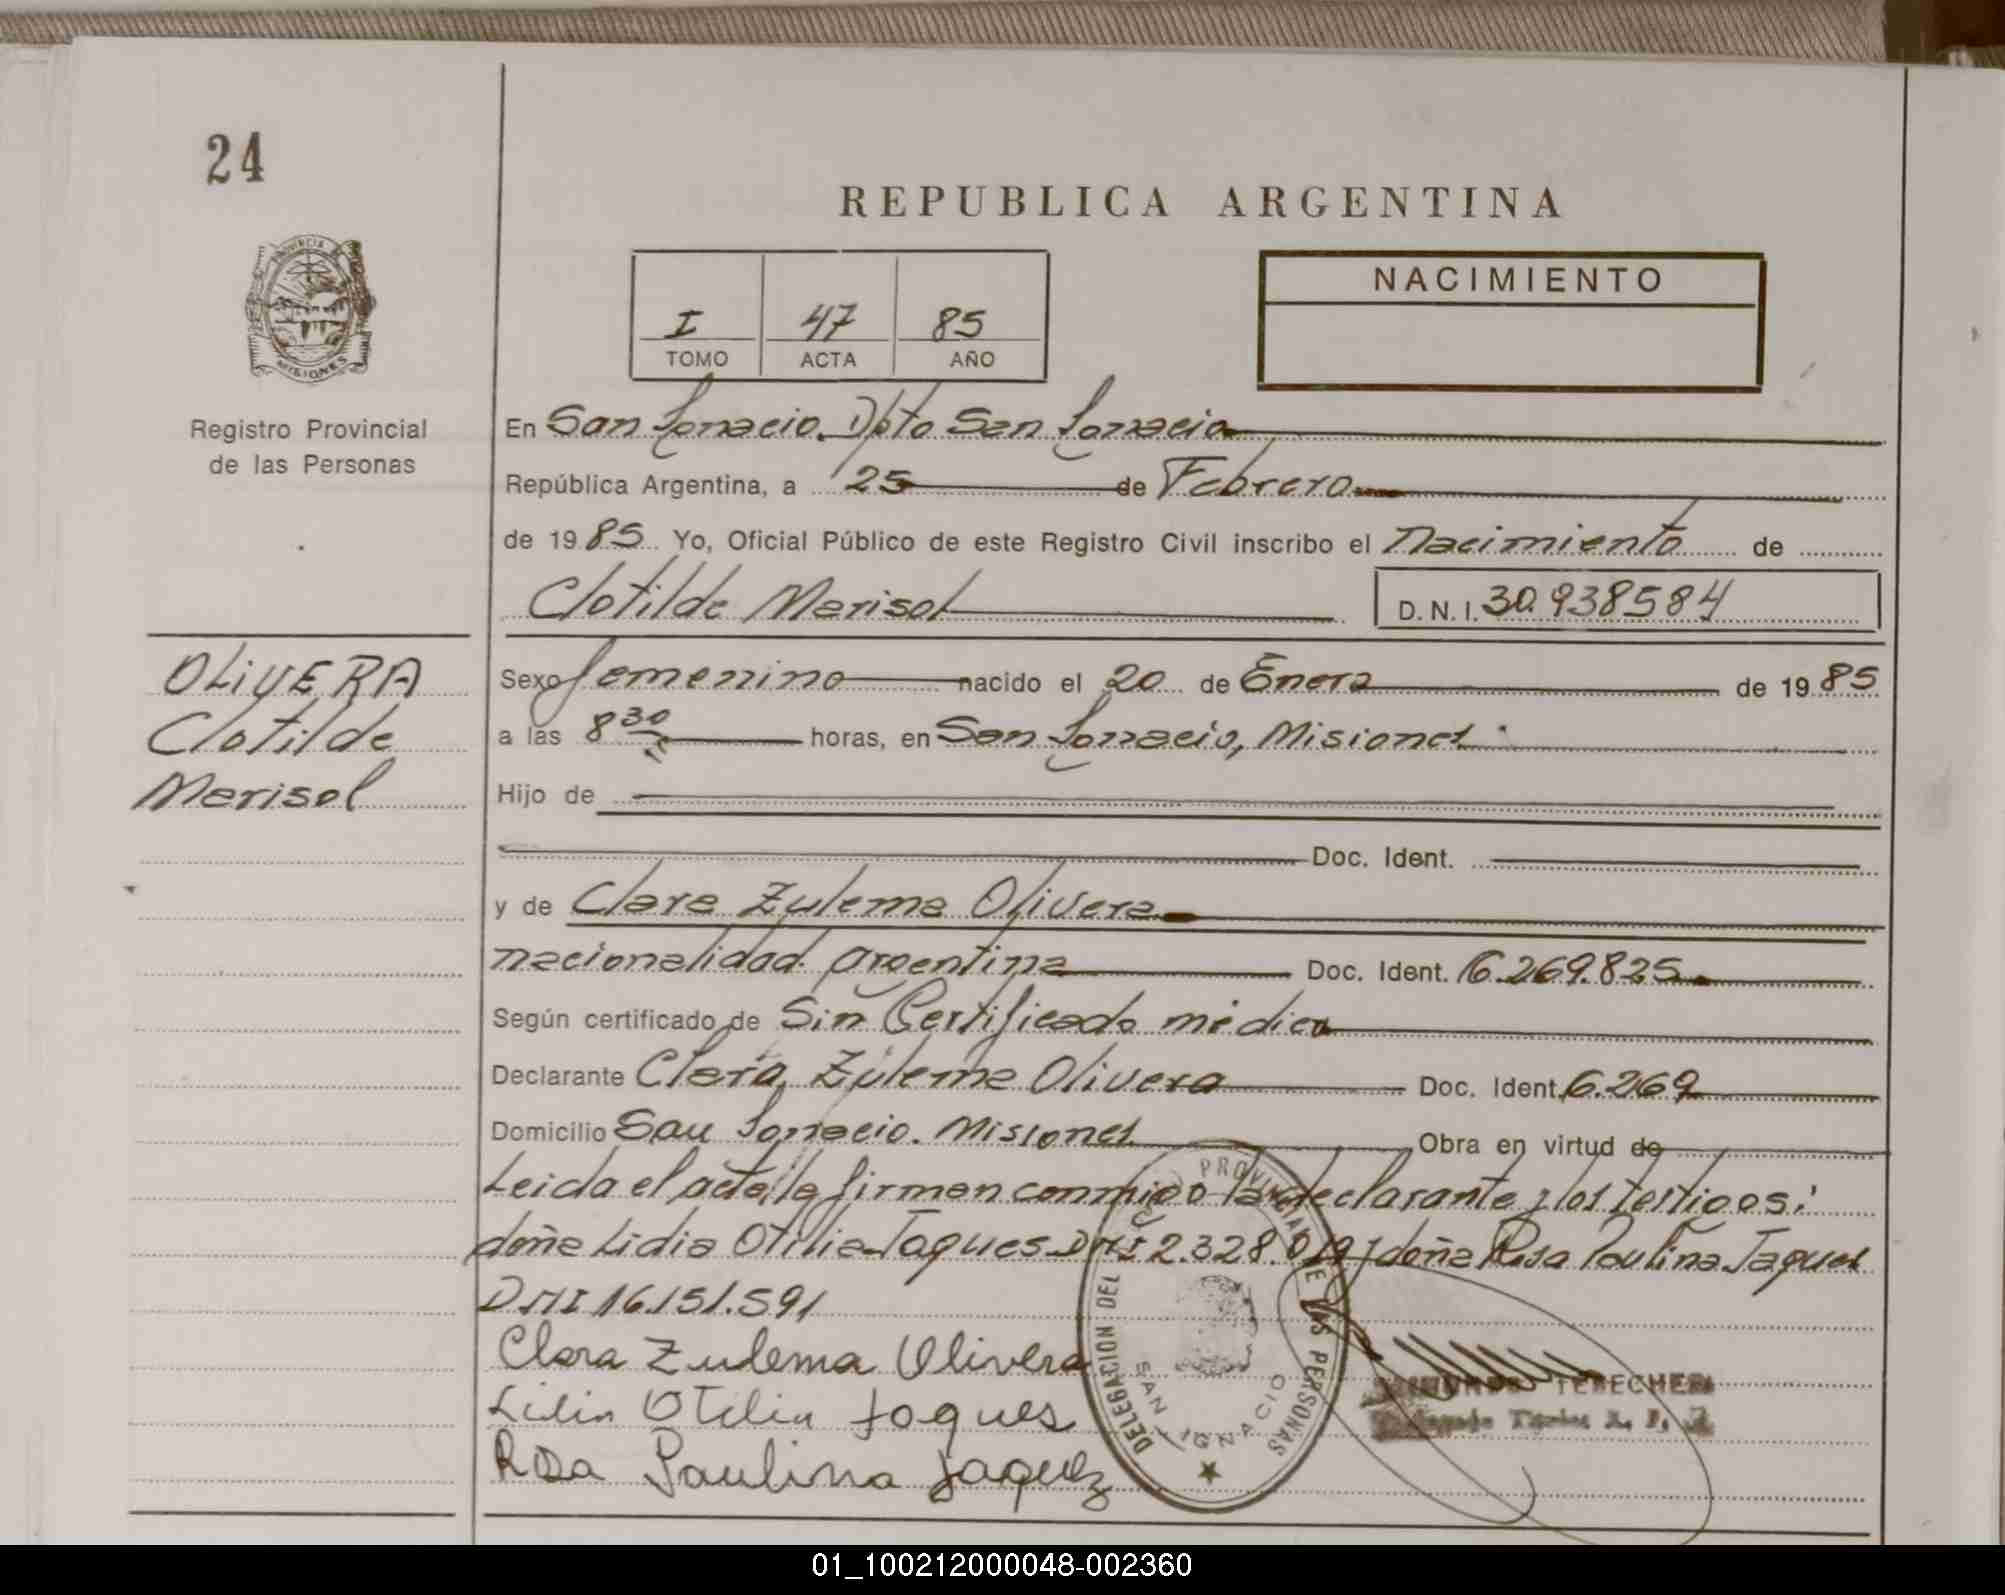 24
REPUBLICA ARGENTINA
PROVINCIA DE MISIONES
I 47 85
TOMO ACTA AÑO
NACIMIENTO
Registro Provincial
de las Personas
En San Ignacio. Dpto San Ignacio
República Argentina, a 25 de Febrero
de 1985 Yo, Oficial Público de este Registro Civil inscribo el Nacimiento de
Clotilde Marisol D.N.I. 30.938584
OLIVERA
Clotilde
Marisol
Sexo femenino nacido el 20 de Enero de 1985
a las 8 30 horas, en San Ignacio, Misiones
Hijo de
Doc. Ident.
y de Clara Zulema Olivera
nacionalidad argentina Doc. Ident. 6.269.825
Según certificado de Sin Certificado médico
Declarante Clara Zulema Olivera Doc. Ident. 6.269
Domicilio San Ignacio. Misiones Obra en virtud de
Leida el acta, la firman conmigo la declarante y los testigos:
doña Lidia Otilia Jaques DNI 2.328.019 y doña Rosa Paulina Jaques
DNI 16.151.591
Clara Zulema Olivera
Lilia Otilia Jaques
Rosa Paulina Jaquez
DELEGACION DEL PROVINCIAL DE LAS PERSONAS
SAN IGNACIO
01_100212000048-002360